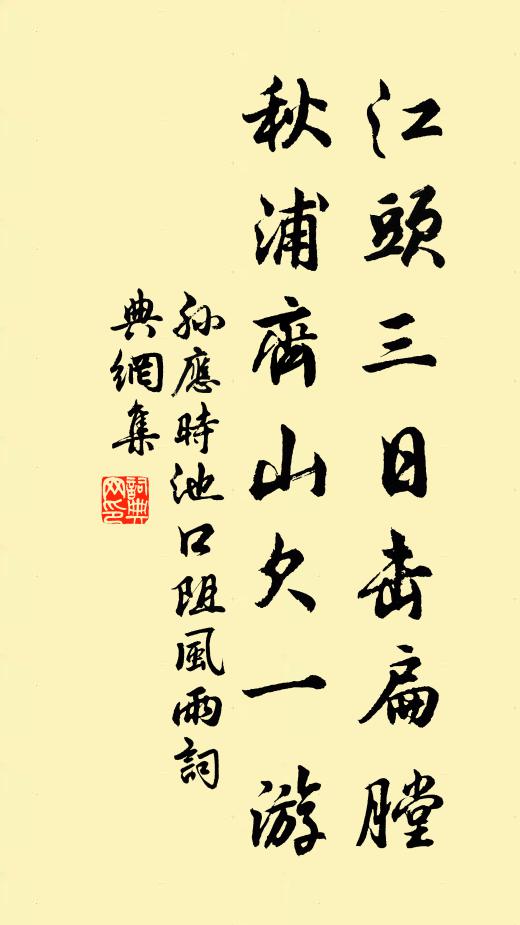 江頭三日击扁膛
秋浦齊山欠一游
孫應時池口阻風雨詞
典網集
詞典
网印